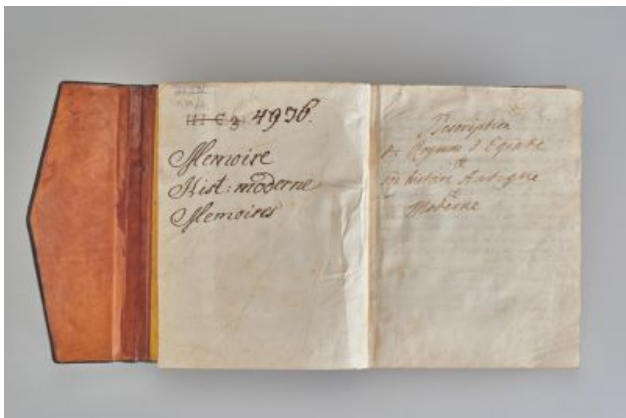 III C g. 4976.
Memoire
Hist: moderne
Memoires
Description
du Royaume d'Egipte
en histoire Antique
et
Moderne